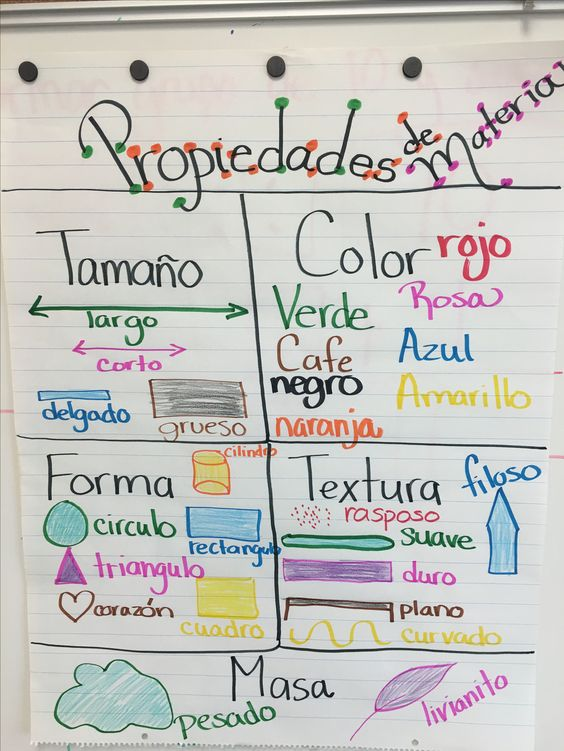 Propiedades de Materia
Tamaño
largo
corto
delgado
grueso
Color rojo
Verde
Rosa
Cafe
Azul
negro
Amarillo
naranja
Forma
cilindro
circulo
rectangulo
triangulo
corazón
cuadro
Textura
filoso
rasposo
suave
duro
plano
curvado
Masa
pesado
livianito